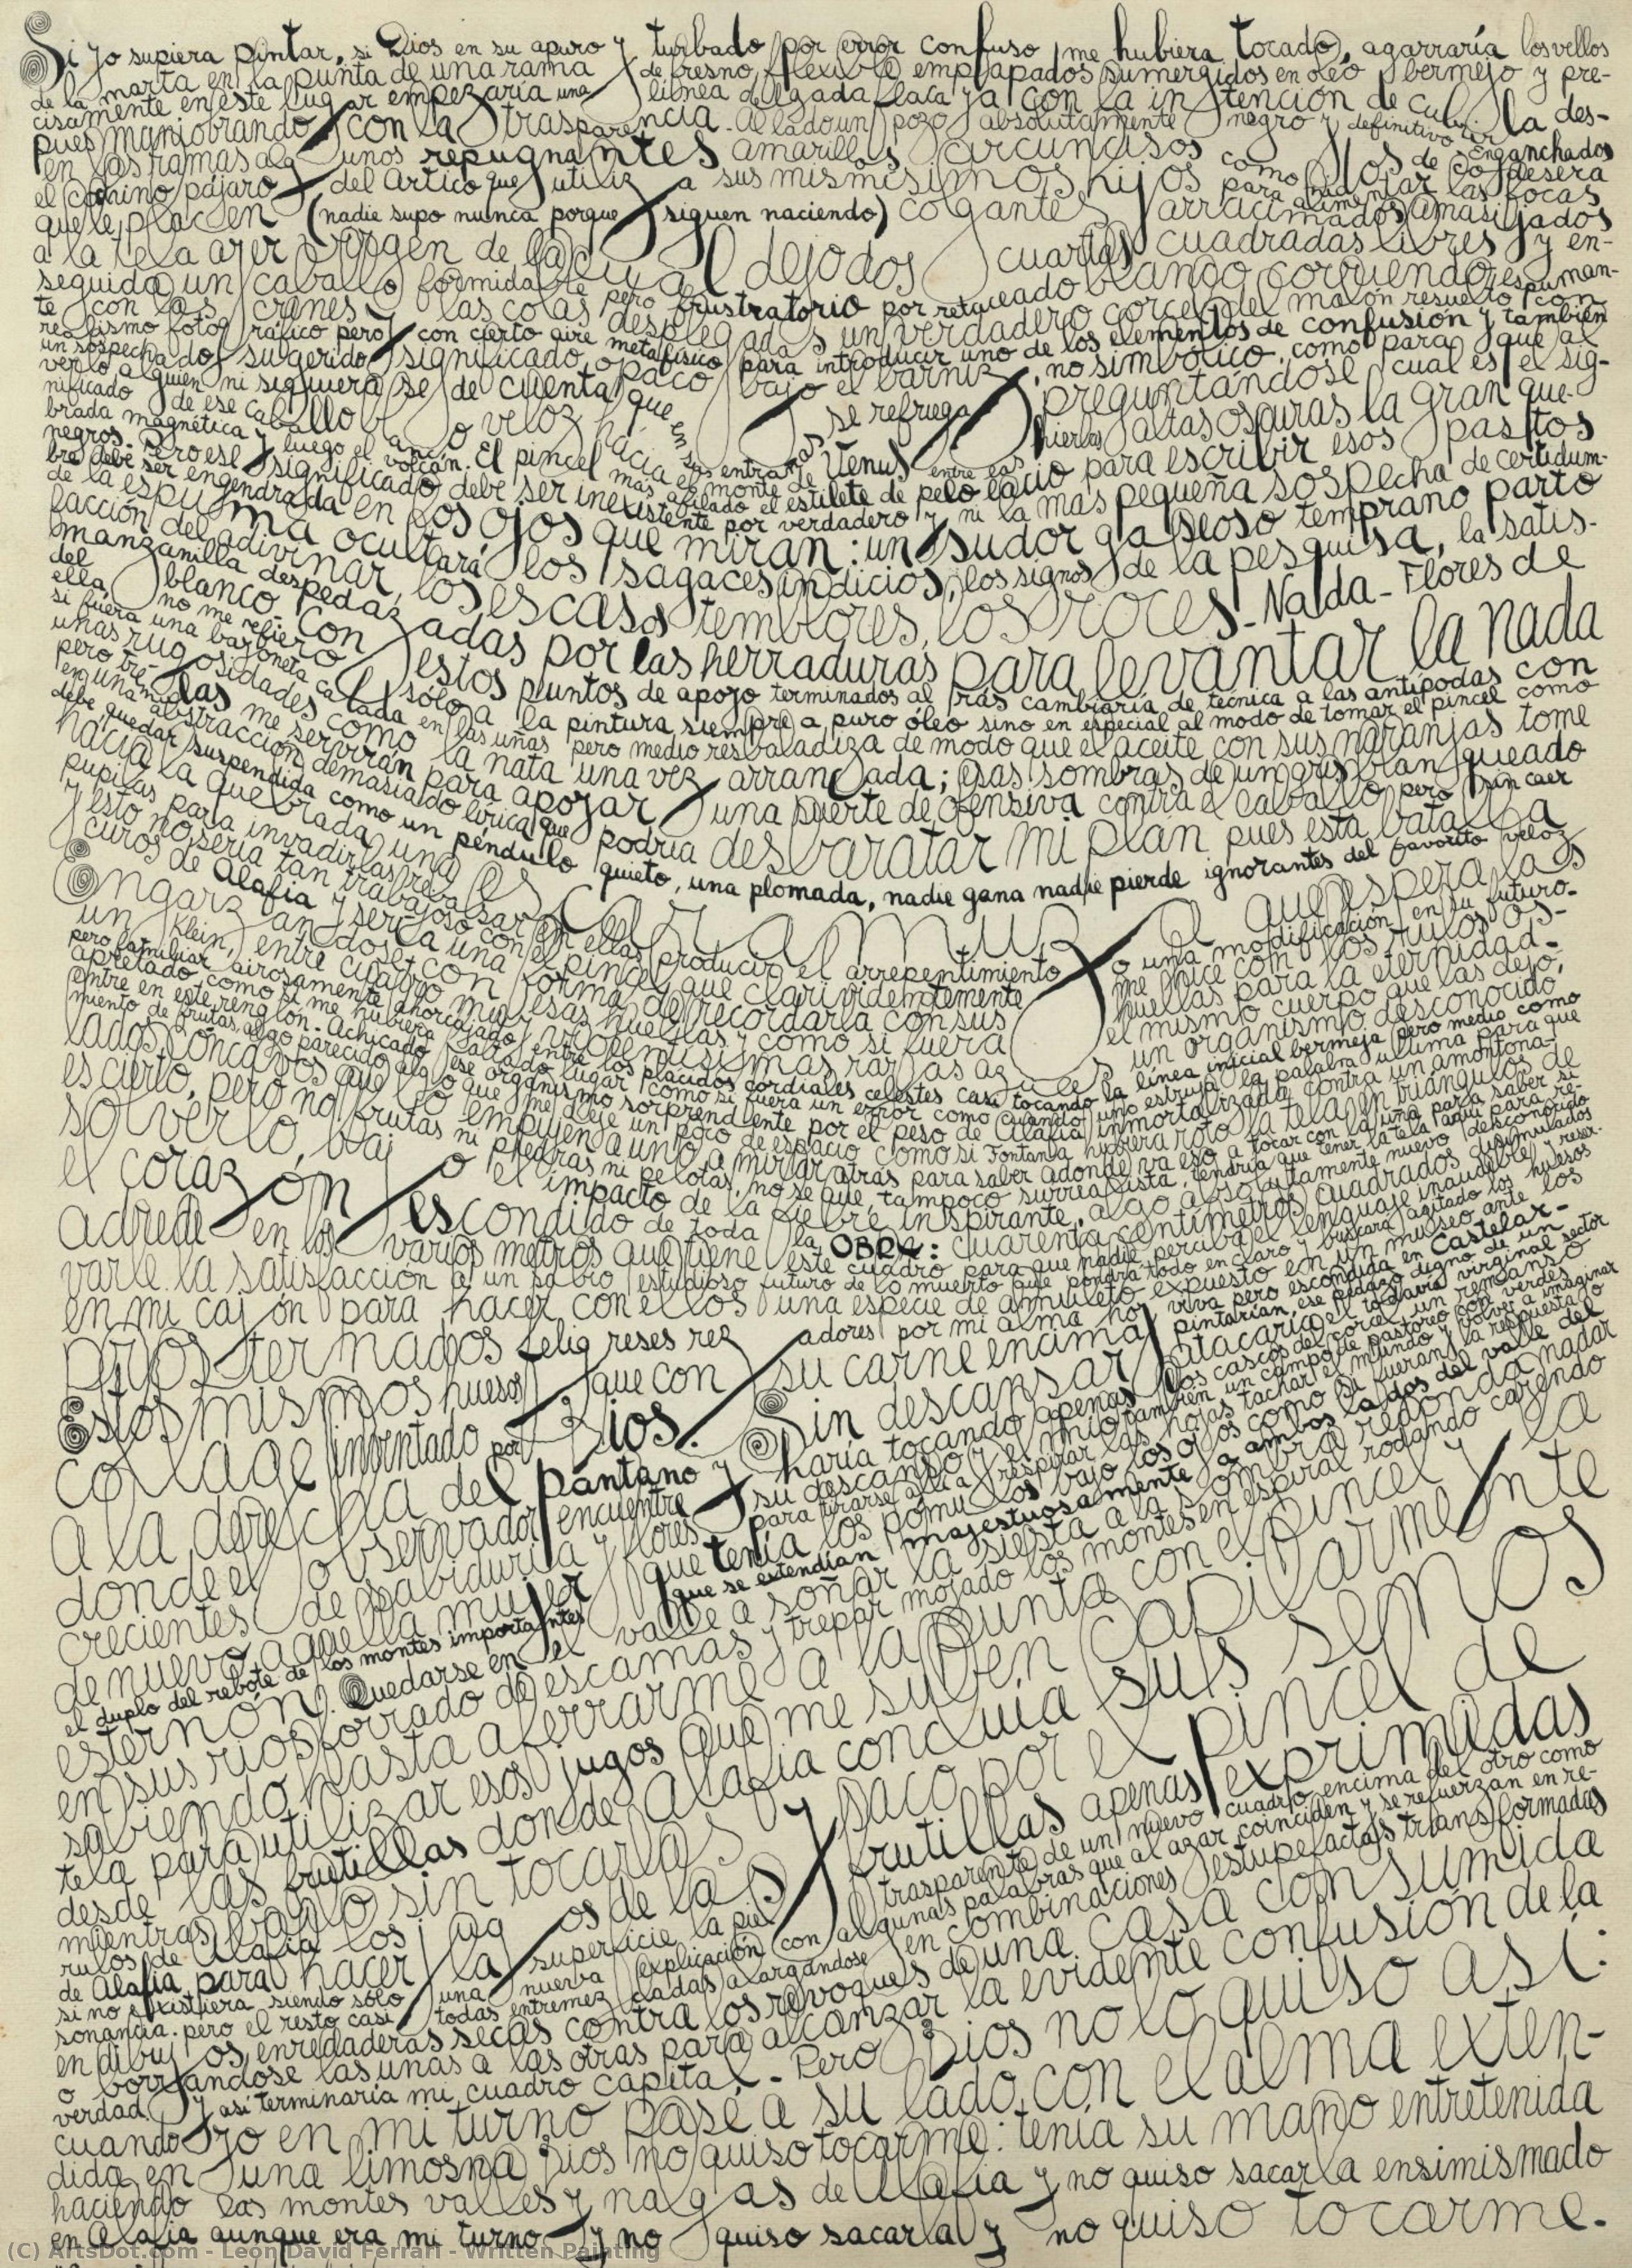 Si yo supiera pintar, si Dios en su apuro y turbado por error confuso me hubiera tocado, agarraría los vellos
de la marta en la punta de una rama de fresno flexible empapados sumergidos en oleo bermejo y pre-
cisamente en este lugar empezaría una línea delgada flaca ya con la intención de cubrir la des-
pués maniobrando con la trasparencia. Al lado un pozo absolutamente negro y definitivo
en las ramas algunos repugnantes amarillos circuncisos como los de enganchados
el cochino pájaro del Artico que utiliza a sus mismísimos hijos para alimentar las focas
que le placen (nadie supo nunca porque siguen naciendo) colgantes arracimados amasijados
a la tela ayer virgen de la cual dejo dos cuartas cuadradas libres y en-
seguida un caballo formidable pero frustratorio por retaceado blanco corriendo espuman-
te con las crines y las colas desplegadas un verdadero corcel del malón resuelto con
realismo fotográfico pero con cierto aire metafísico para introducir uno de los elementos de confusión y también
un sospechado sugerido significado opaco bajo el barniz, no simbólico, como para que al
verlo alguien ni siquiera se de cuenta que en sus entrañas se refriega preguntándose cual es el sig-
nificado de ese caballo blanco veloz hacia el monte de Venus entre las hierbas altas oscuras la gran que-
brada magnética y luego el volcán. El pincel más afilado el estilete de pelo lacio para escribir esos pastitos
negros. Pero ese significado debe ser inexistente por verdadero y ni la más pequeña sospecha de certidum-
bre debe ser engendrada en los ojos que miran: un sudor gaseoso temprano parto
de la espuma ocultará los sagaces indicios, los signos de la pesquisa, la satis-
facción del adivinar, los escasos temblores, los roces. Nalda - Flores de
manzanilla despedazadas por las herraduras para levantar la nada
del blanco. Con estos puntos de apoyo terminados al ras cambiaría de técnica a las antípodas con
ella no me refiero sólo a la pintura siempre a puro óleo sino en especial al modo de tomar el pincel como
si fuera una bayoneta calada en las uñas pero medio resbaladiza de modo que el aceite con sus naranjas tome
unas rugosidades como la nata una vez arrancada; esas sombras de un gris blanqueado
pero tré- las me servirán para apoyar una suerte de ofensiva contra el caballo pero sin caer
en una abstracción demasiado lírica que podría desbaratar mi plan pues esta batalla
debe quedar suspendida como un péndulo quieto, una plomada, nadie gana nadie pierde ignorantes del favorito veloz
hacia la quebrada una escaramuza que espera las
pupilas para invadirlas rebalsar en ellas producir el arrepentimiento o una modificación en su futuro.
y esto no sería tan trabajoso con el pincel que clarividentemente me hice con los rulos os-
curos de Alafia y sería una forma de recordarla con sus huellas para la eternidad.
Engarzandose con esas huellas y como si fuera el mismo cuerpo que las dejó,
un Klein, entre cuatro muy prudentísimas rayas azules un organismo desconocido,
pero familiar airosamente ahorcajado entre los plácidos cordiales celestes casi tocando la línea inicial bermeja pero medio como
apretado como si me hubiera faltado lugar como si fuera un error como cuando uno estruja la palabra última para que
entre en este renglón. Achicado ese organismo sorprendente por el peso de Alafia inmortalizada contra un amontona-
miento de frutas algo parecido algo que me deje un poco de espacio como si Fontana hubiera roto la tela en triángulos de
lados cóncavos que lo empujen a uno a mirar atrás para saber adonde va eso a tocar con la uña para saber si
es cierto, pero no frutas ni piedras ni pelotas, no se que, tampoco surrealista, tendría que tener la tela aquí para re-
solverlo, bajo el impacto de la fiebre inspirante, algo absolutamente nuevo desconocido
el corazón escondido de toda la OBRA: cuarenta centímetros cuadrados disimulados
adrede en los varios metros que tiene este cuadro para que nadie perciba el lenguaje inaudible y reser-
varle la satisfacción a un sabio estudioso futuro de lo muerto que pondrá todo en claro y buscará agitado los huesos
en mi cajón para hacer con ellos una especie de amuleto expuesto en un museo ante los
prosternados feligreses rezadores por mi alma no viva pero escondida en Castelar.
Estos mismos huesos que con su carne encima pintarían ese pedazo digno de un
collage inventado por Dios. Sin descansar atacaría el todavía virginal sector
a la derecha del pantano y haría tocando apenas los cascos del corcel un remanso
donde el observador encuentre su descanso y el mío también un campo de pastoreo con verdes
crecientes de sabiduría y flores para tirarse allí a respirar las hojas tachar el mundo y volver a imaginar
de nuevo a aquella mujer que tenía los pómulos bajo los ojos como si fueran la respuesta o
el duplo del rebote de los montes importantes que se extendían majestuosamente a ambos lados del valle del
esternón. Quedarse en el valle a soñar la siesta a la sombra redonda nadar
en sus ríos forrado de escamas y trepar mojado los montes en espiral rodando cayendo
sabiendo hasta aferrarme a la punta con el pincel y la
tela para utilizar esos jugos que me suben capilarmente
desde las frutillas donde Alafia concluía sus senos
mientras bajo sin tocarlas y paco por el pincel de
rulos de Alafia los jugos de las frutillas apenas exprimidas
de Alafia para hacer la superficie la piel trasparente de un nuevo cuadro encima del otro como
si no existiera siendo sólo una nueva explicación con algunas palabras que al azar coinciden y se refuerzan en re-
sonancia. pero el resto casi todas entremezcladas alargándose en combinaciones estupefactas transformadas
en dibujos enredaderas secas contra los revoques de una casa consumida
o borrándose las unas a las otras para alcanzar la evidente confusión de la
verdad. Y así terminaría mi cuadro capital. - Pero Dios no lo quiso así:
cuando yo en mi turno pasé a su lado con el alma exten-
dida en una limosna Dios no quiso tocarme: tenía su mano entretenida
haciendo los montes valles y nalgas de Alafia y no quiso sacarla ensimismado
en Alafia aunque era mi turno y no quiso sacarla y no quiso tocarme.
(C) ArtsDot.com - Leon David Ferrari - Written Painting